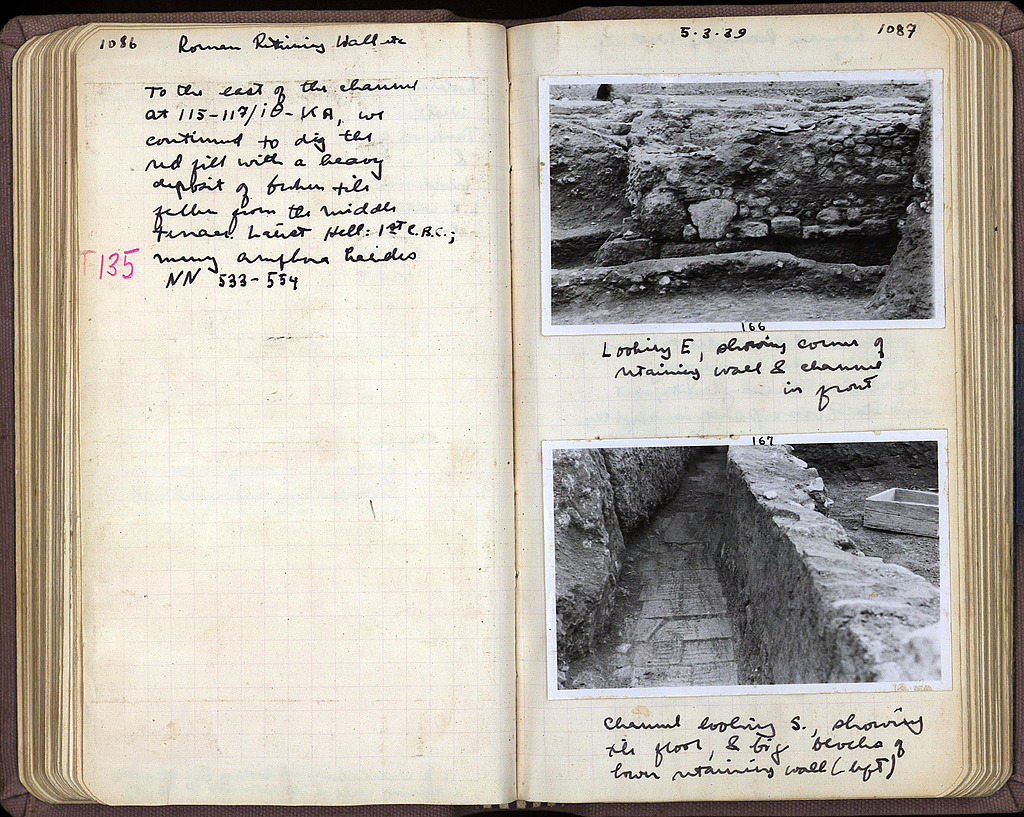 1086 Roman Retaining Wall etc
To the east of the channel
at 115-117/ΙΘ-ΚΑ, we
continued to dig the
red fill with a heavy
deposit of broken tile
fallen from the middle
terrace. Latest Hell: 1st c. B.C.;
T 135 many amphora handles
NN 533-554
5.3.39 1087
166
Looking E, showing corner of
retaining wall & channel
in front
167
Channel looking S., showing
tile floor, & big blocks of
lower retaining wall (left)